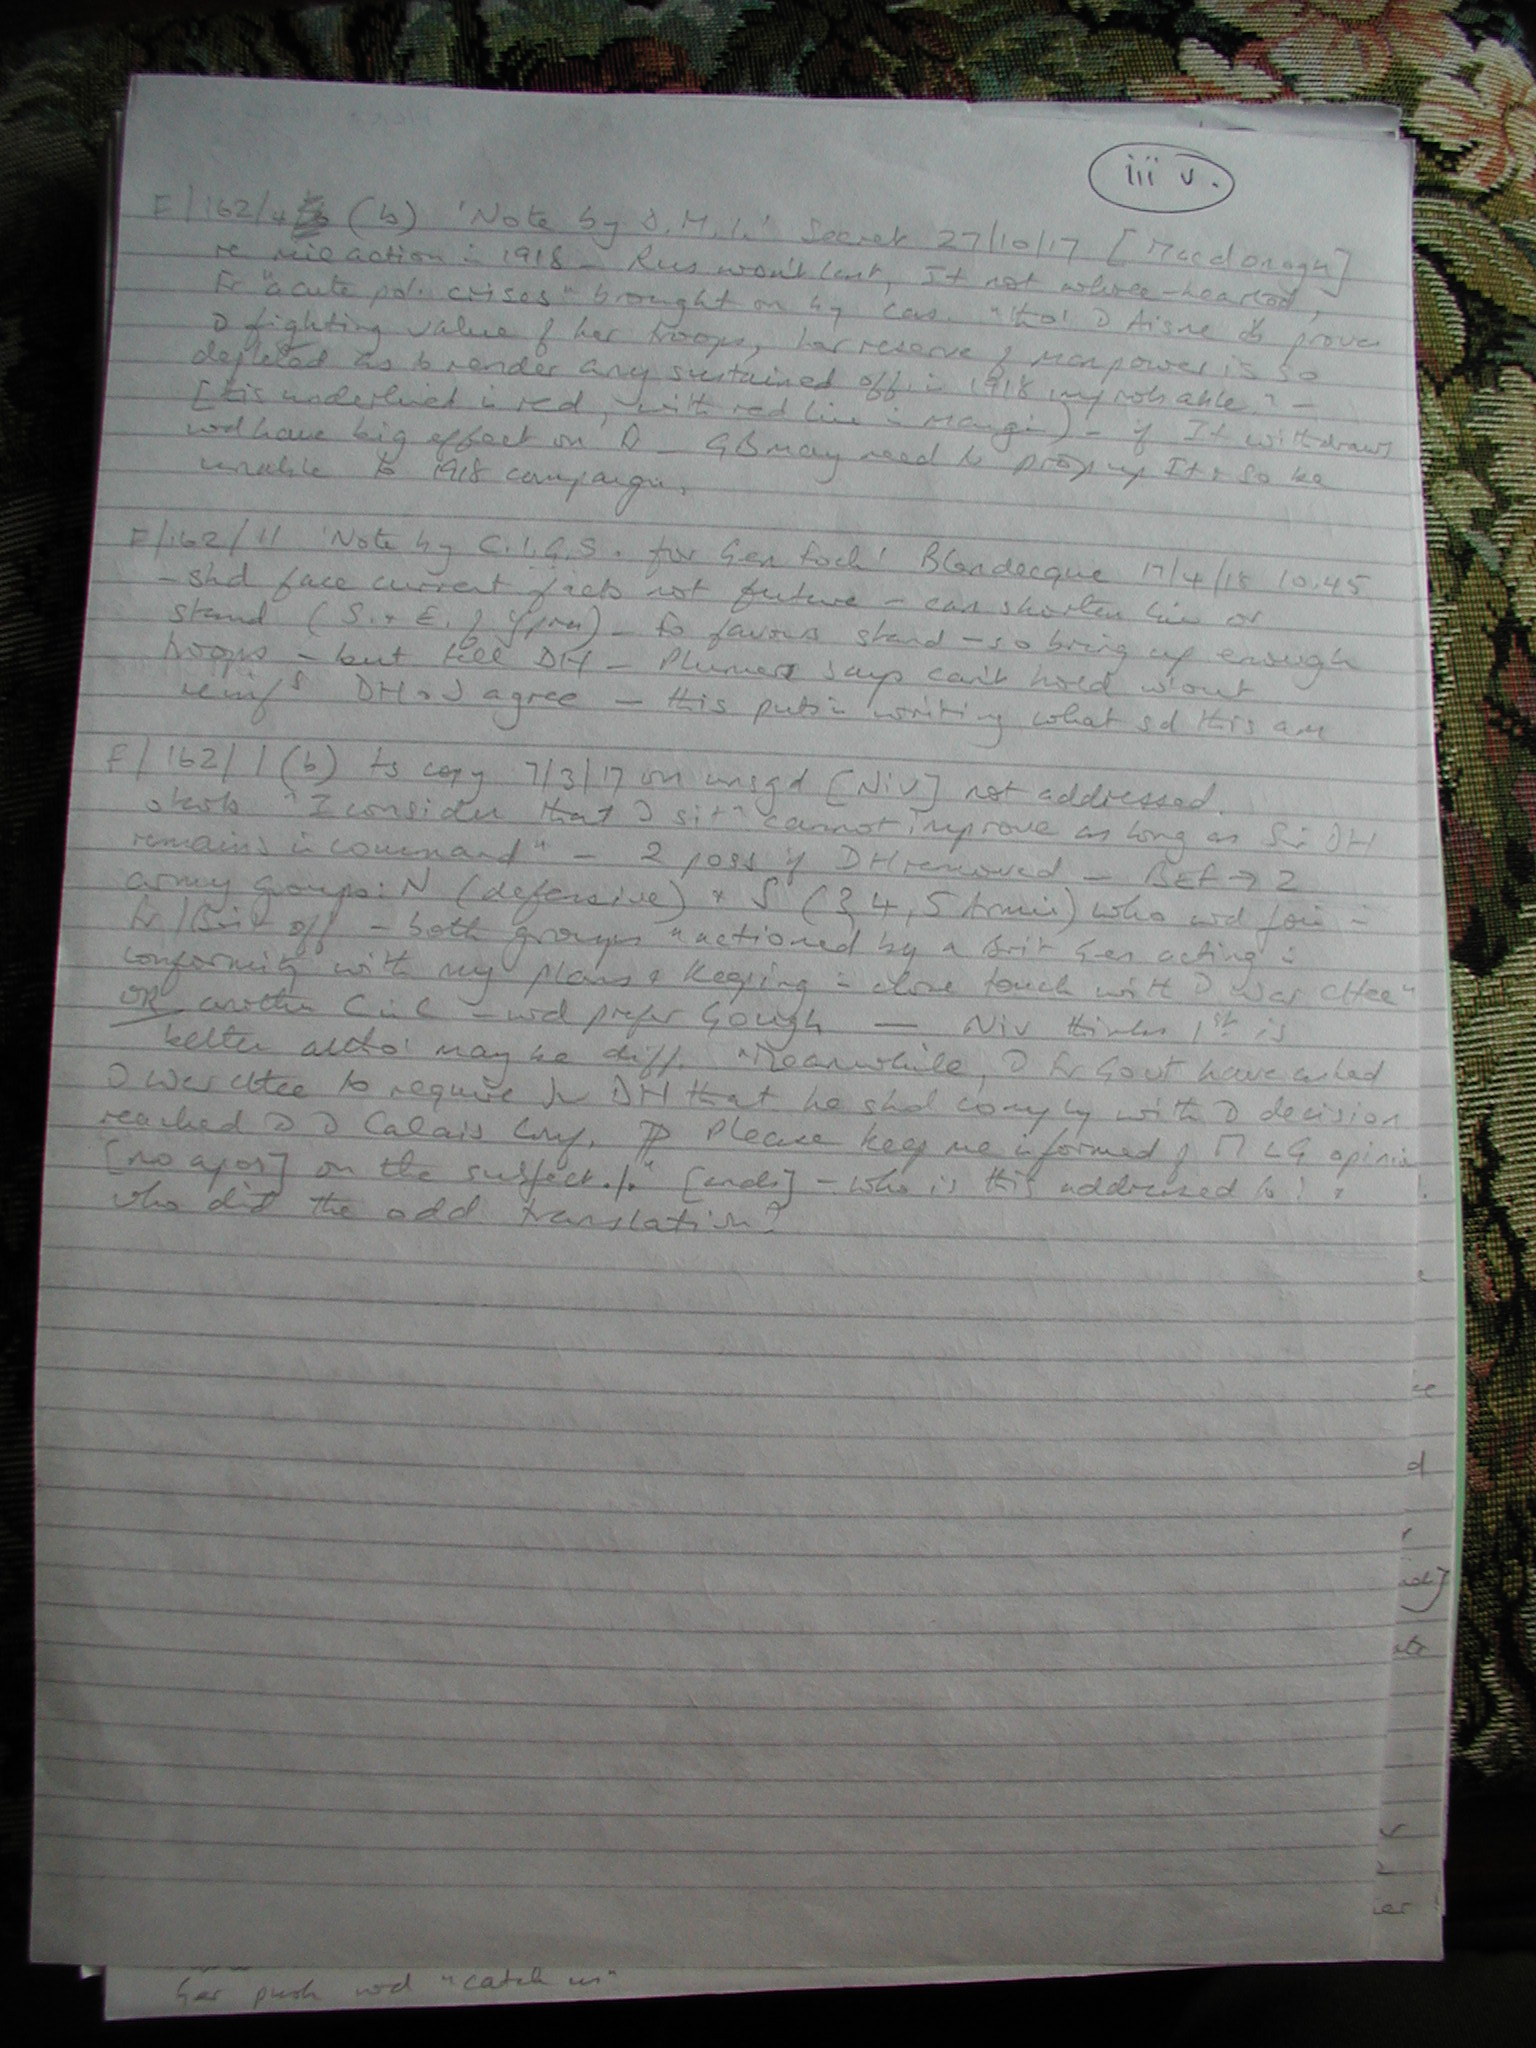 iii v.
F/162/4 (b) 'Note by D.M.I.' Secret 27/10/17 [Macdonogh]
re mil action in 1918 – Rus won't last, It not whole-hearted,
Fr "acute pol. crises" brought on by cas. "tho' D Aisne proves
D fighting value of her troops, her reserve of manpower is so
depleted as to render any sustained off. in 1918 improbable." –
[this underlined in red, with red line in margin] – if It withdraws
wd have big effect on D – GB may need to prop up It & so be
unable to 1918 campaign.
F/162/11 'Note by C.I.G.S. for Gen Foch' Blendecque 17/4/18 10.45
– shd face current facts not future – can shorten line or
stand (S. & E. of Ypres) – Fo favours stand – so bring up enough
troops – but tell DH – Plumer says can't hold w'out
reinfs DH & I agree – this puts in writing what sd this am
F/162/1 (b) ts copy 7/3/17 on unsgd [Niv] not addressed.
starts "I consider that D sitn cannot improve as long as Sir DH
remains in command" – 2 poss if DH removed – BEF → 2
army groups: N (defensive) & S (3, 4, 5 Armies) who wd join in
Fr/Brit off – both groups "actioned by a Brit Gen acting in
conformity with my plans & keeping in close touch with D War Cttee"
OR another C in C – wd prefer Gough — Niv thinks 1st is
better altho' may be diff. "Meanwhile, D Fr Govt have asked
D War Cttee to require fr DH that he shd comply with D decision
reached D Calais Conf. ¶ Please keep me informed of M LG opinion
[no apos] on the subject./." [ends] – who is this addressed to! &
who did the odd translation?
Ger push wd "catch us"